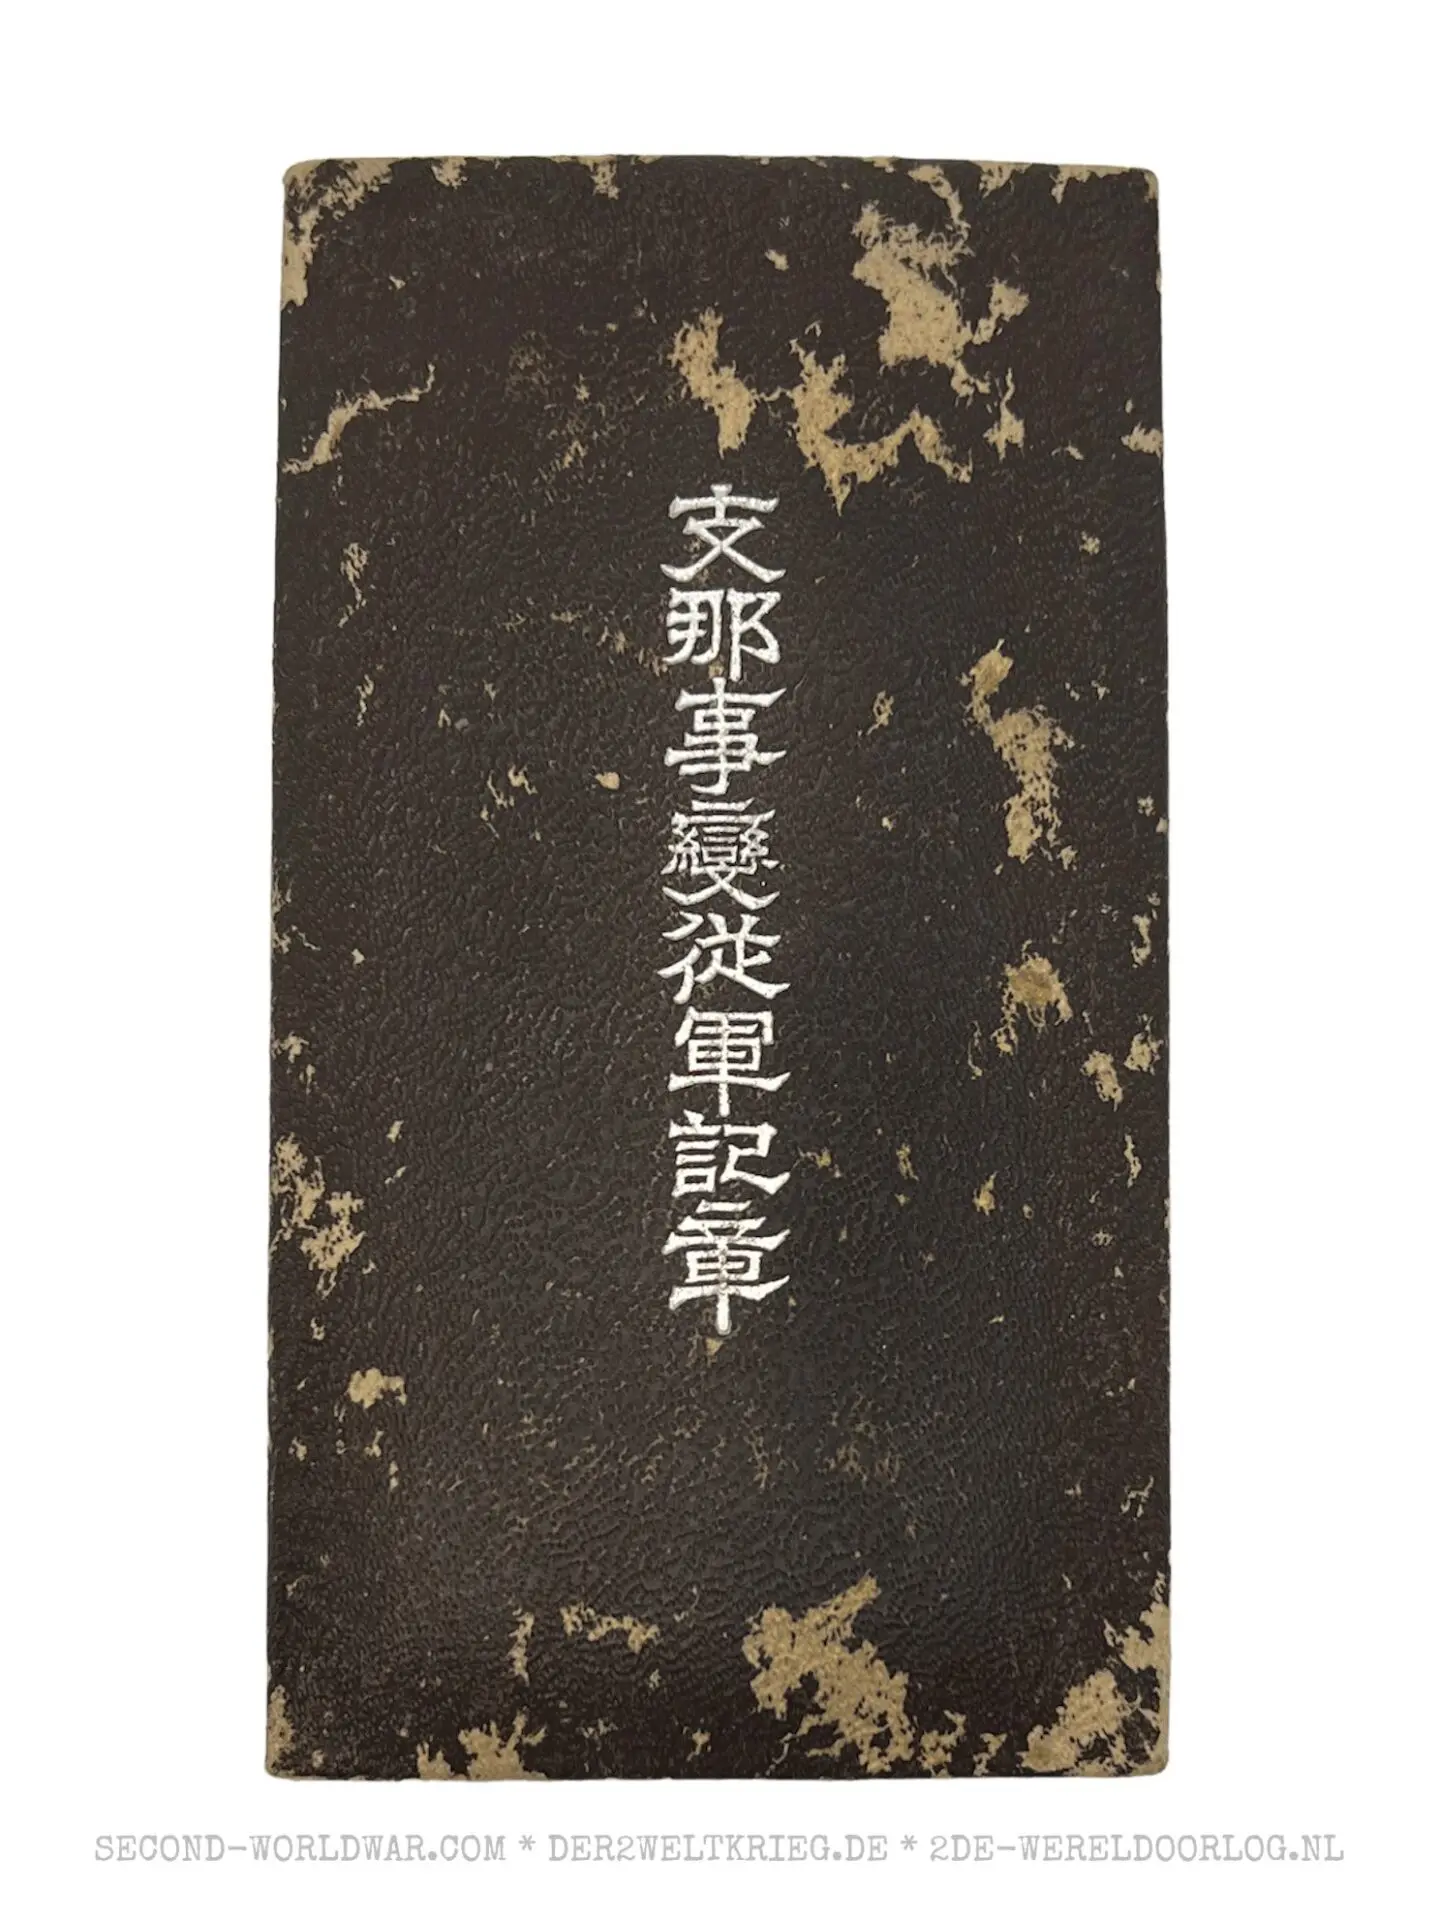 支那事變從軍記章
SECOND-WORLDWAR.COM * DER2WELTKRIEG.DE * 2DE-WERELDOORLOG.NL